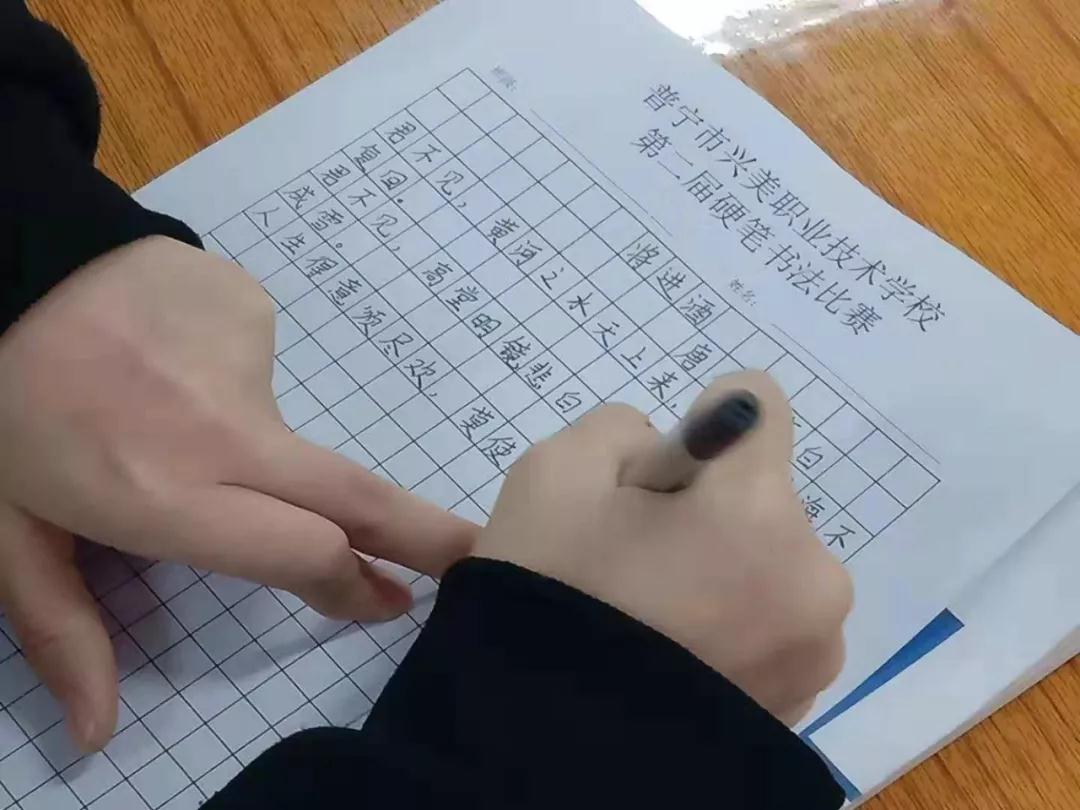 普宁市兴美职业技术学校
第二届硬笔书法比赛
班级: 姓名:
将进酒
唐 白
君不见,黄河之水天上来, 海不
复回。
君不见,高堂明镜悲白
成雪。
人生得意须尽欢,莫使